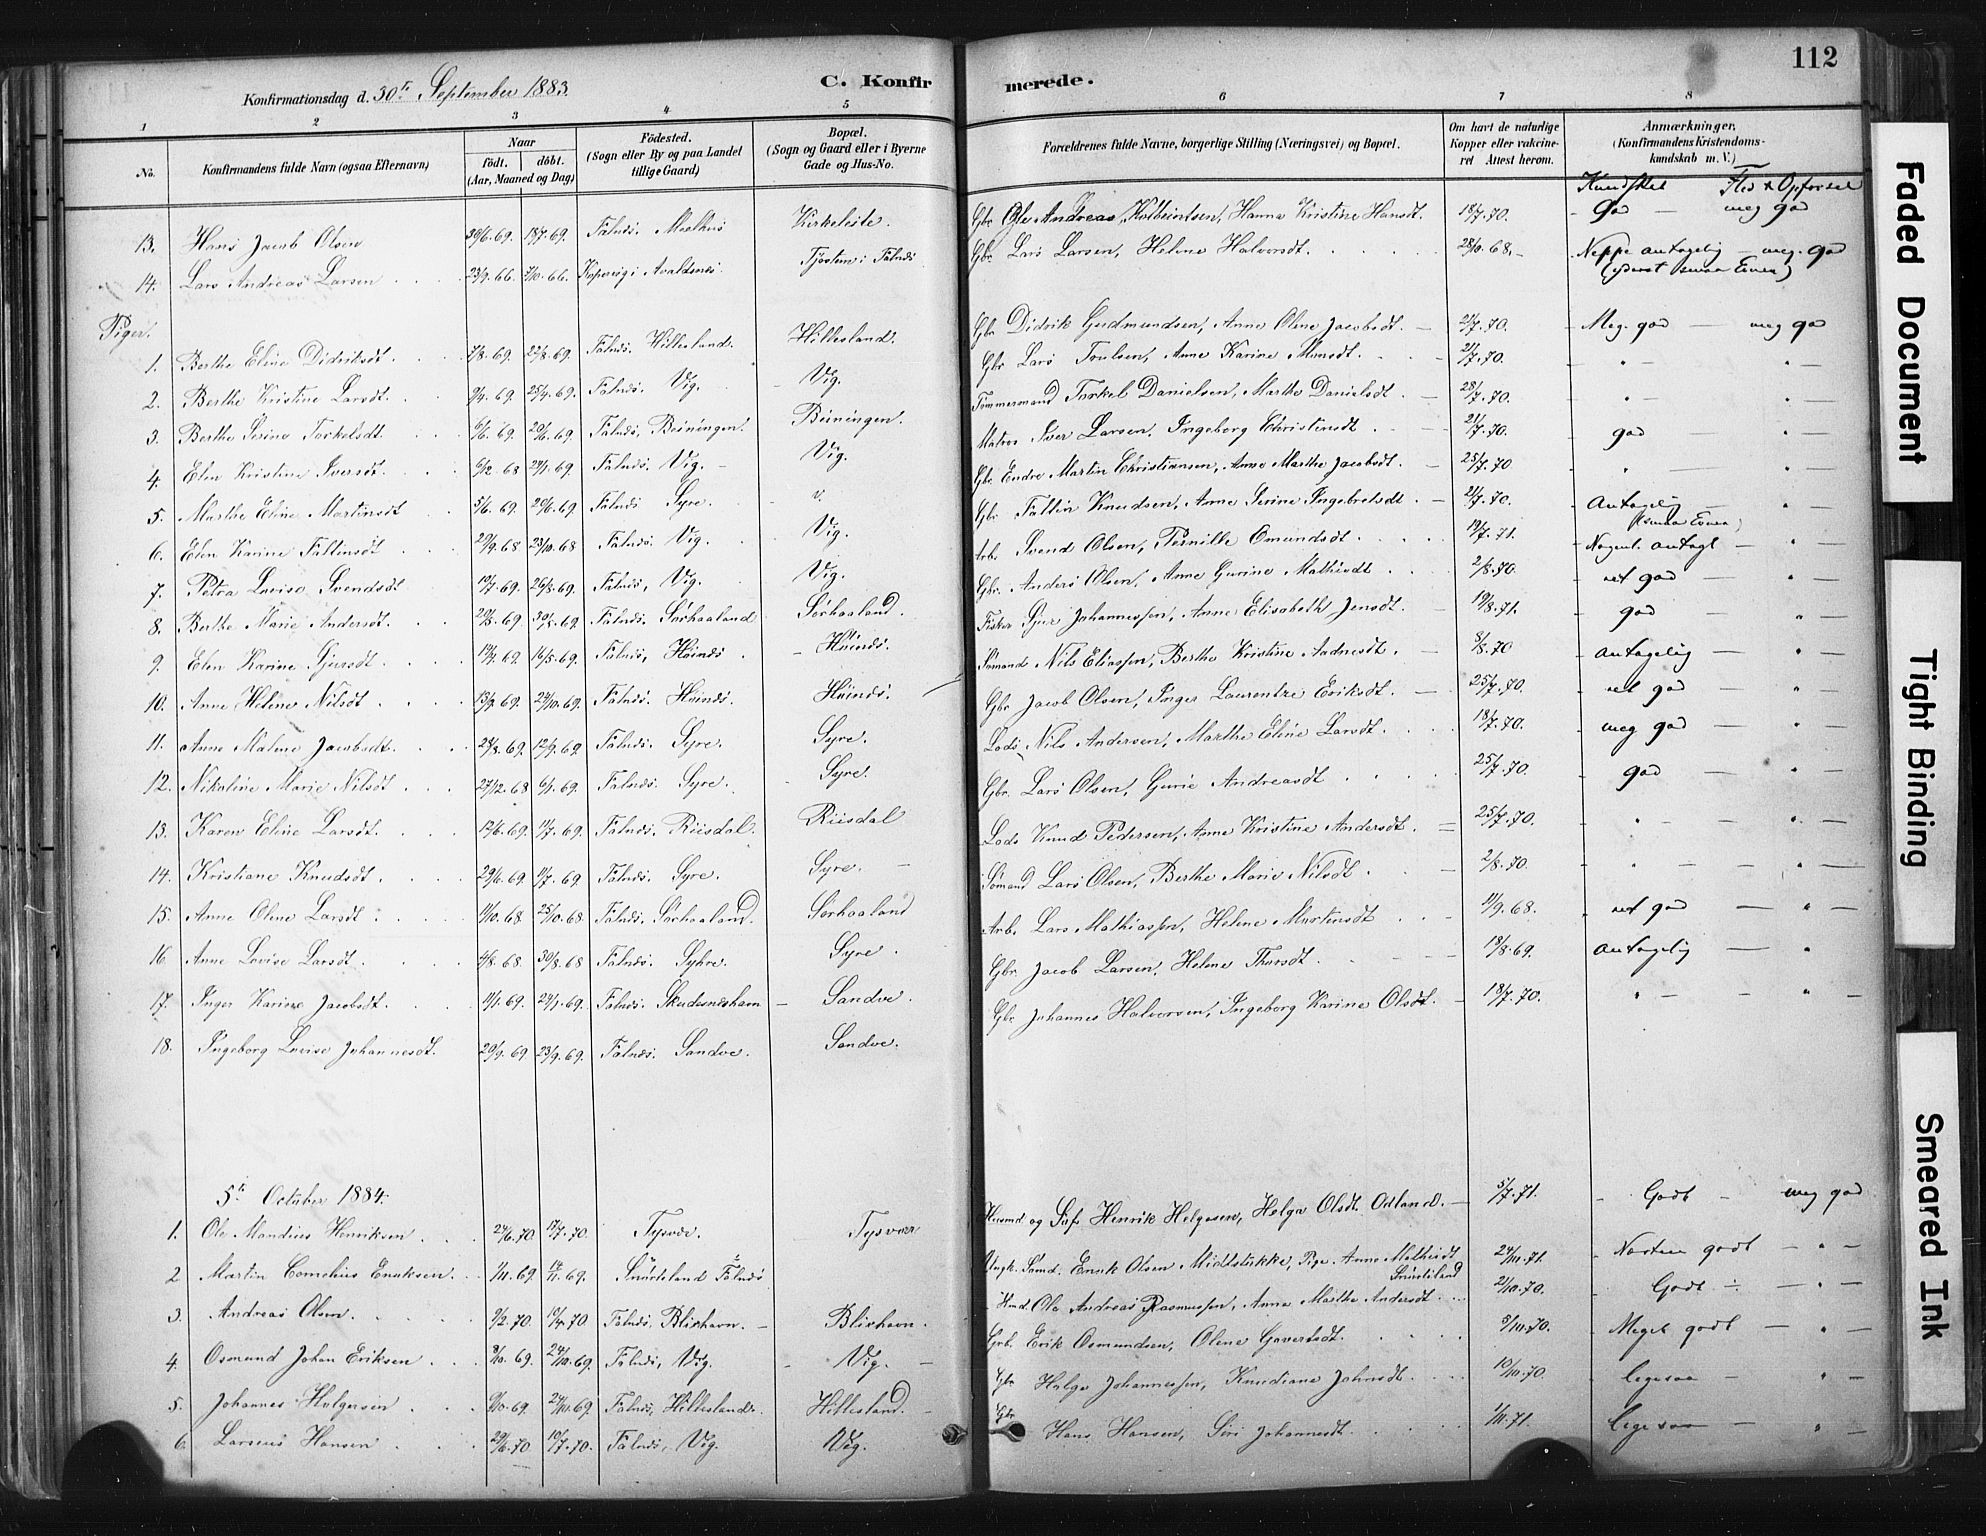 112
Konfirmationsdag d. 30te September 1883.
C. Konfirmerede.
1 2 3 4 5 6 7 8
No. Konfirmandens fulde Navn (ogsaa Efternavn) Naar født. døbt. (Aar, Maaned og Dag) Fødested. (Sogn eller By og paa Landet tillige Gaard) Bopæl. (Sogn og Gaard eller i Byerne Gade og Hus-No. Forældrenes fulde Navne, borgerlige Stilling (Næringsvei) og Bopæl. Om havt de naturlige Kopper eller vakcineret Attest herom. Anmærkninger. (Konfirmandens Kristendomskundskab m. V.)
Kundskab Flid & Opførsel
13. Hans Jacob Olsen 30/6.69. 18/7.69. Falnæs. Mælhus Kirkeleite. Gbr. Ole Andreas Kolbeintsen, Hanna Kristine Hansdt. 18/7.70. - god - meg god
14. Lars Andreas Larsen 23/9.66. 7/10.66. Kopervig i Avaldsnes. Tjøsten i Falnæs Gbr. Lars Larsen, Helene Halvorsdt. 28/10.68. Neppe antagelig - meg. god
(yderst smaa Evner)
Piger.
1. Berthe Eline Didriksdt. 7/8.69. 22/8.69. Falnæs. Hillesland. Hillesland. Gbr. Didrik Gudmundsen, Anne Oline Jacobsdt. 21/7.70. Meg. god - meg god
2. Berthe Kristine Larsdt. 9/4.69. 25/4.69. Falnæs. Vig. Vig. Gbr. Lars Troulsen, Anne Karine Monsdt. 21/7.70. " "
3. Berthe Serine Torkelsdt. 6/6.69. 20/6.69. Falnæs, Beiningen. Beiningen. Tømmermand Torkel Danielsen, Marthe Danielsdt. 28/7.70. " "
4. Elen Kristine Iversdt. 6/12.68 24/1.69. Falnæs. Vig. Vig. Matros Iver Larsen, Ingeborg Christensdt. 21/7.70. god "
5. Marthe Eline Martinsdt 5/6.69. 20/6.69. Falnæs Syre. Gbr. Endre Martin Christiansen, Anne Marthe Jacobsdt. 25/7.70 " "
6. Elen Karine Faltinsdt 29/9.68 23/10.68 Falnæs. Vig. Vig. Gbr. Faltin Knudsen, Anne Serine Ingebretsdt. 21/7.70. Antagelig "
(smaa Evner)
7. Petra Lovise Svendsdt 19/7.69. 26/8.69. Falnæs, Vig. Vig. Arb. Svend Olsen, Pernille Omundsdt. 19/7.71. Nogenl. antagl "
8. Berthe Marie Andersdt. 20/8.69. 30/8.69. Falnæs. Sørhaaland Sørhaaland. Gbr. Anders Olsen, Anne Gurine Mathiasdt. 2/8.70. ret god "
9. Elen Karine Gjersdt. 69. 16/5.69. Falnæs, Høinæs. Høinæs. Fisker Gjer Johannessen, Anne Elisabeth Jensdt. 19/8.71. god "
10. Anne Helene Nilsdt. 13/9.69. 24/10.69. Falnæs. Høinæs. Høinæs. Sømand Nils Eliassen, Berthe Kristine Aadnesdt. 8/8.70 antagelig "
11. Anne Malene Jacobsdt. 24/8.69. 12/9.69. Falnæs. Syre. Syre. Gbr. Jacob Olsen, Inger Laurentze Eriksdt. 25/7.70. ret god "
12. Nikoline Marie Nilsdt 27/12.68 6/1.69. Falnæs. Syre. Syre. Lods Nils Andersen, Marthe Eline Larsdt. 18/7.70. meg god "
13. Karen Eline Larsdt. 12/6.69. 11/7.69. Falnæs. Riisdal. Riisdal Gbr. Lars Olsen, Gurie Andreasdt 25/7.70. god "
14. Kristiane Knudsdt. 29/6.69. 11/7.69. Falnæs. Syre. Syre. Lods Knud Pedersen, Anne Kristine Andersdt. 25/7.70. " "
15. Anne Oline Larsdt. 11/10.68 25/10.68 Falnæs. Sørhaaland. Sørhaaland Sømand Lars Olsen, Berthe Marie Nilsdt. 2/8.70. " "
16. Anne Lovise Larsdt. 4/8.68. 30/8.68 Falnæs. Syhre. Syre. Arb. Lars Mathiassen, Helene Martinsdt 11/9.68. ret god "
17. Inger Karine Jacobsdt. 11/1.69. 24/1.69. Falnæs. Skudesneshavn Sandve. Gbr. Jacob Larsen, Helene Thorsdt. 18/8.69. antagelig "
18. Ingeborg Lovise Johannesdt. 20/9.69 23/9.69. Falnæs. Sandve. Sandve. Gbr Johannes Halvorsen, Ingeborg Karine Olsdt. 18/7.70. " "
5te October 1884.
1. Ole Mandius Henriksen 24/6.70 17/7.70. Tysvær. Tysvær Husmd. og Henrik Helgesen, Helga Olsdt. Odland. 5/7.71. Godt - meg god
2 Martin Cornelius Enoksen. 1/11.69. 14/11.69. Snørteland Falnæs Ungk. Sømd. Enok Olsen Midtstøkke, Pige Anne Mathisdt Snørteland 24/10.71. Næsten godt "
3. Andreas Olsen. 9/2.70. 10/4.70. Falnæs. Blixhavn. Blixhavn. Ole Andreas Rasmussen, Anne Marthe Andersdt. 2/10.70. Godt "
4. Osmund Johan Eriksen 8/10.69. 24/10.69. Falnæs, Vig. Vig. Grb. Erik Osmundsen, Oline Govertsdt. 8/10.70. Meget godt "
5. Johannes Helgesen 9/10.69. 24/10.69. Falnæs, Hillesland. Hillesland. Gbr Helge Johannessen, Knudiane Johnsdt. 10/10.70. ligesaa "
6. Larsius Hansen 29/6.70 10/7.70. Falnæs, Vig. Vig. Gbr Hans Hansen, Siri Johannesdt. 1/11.71. ligesaa "
Faded Document
Tight Binding
Smeared Ink